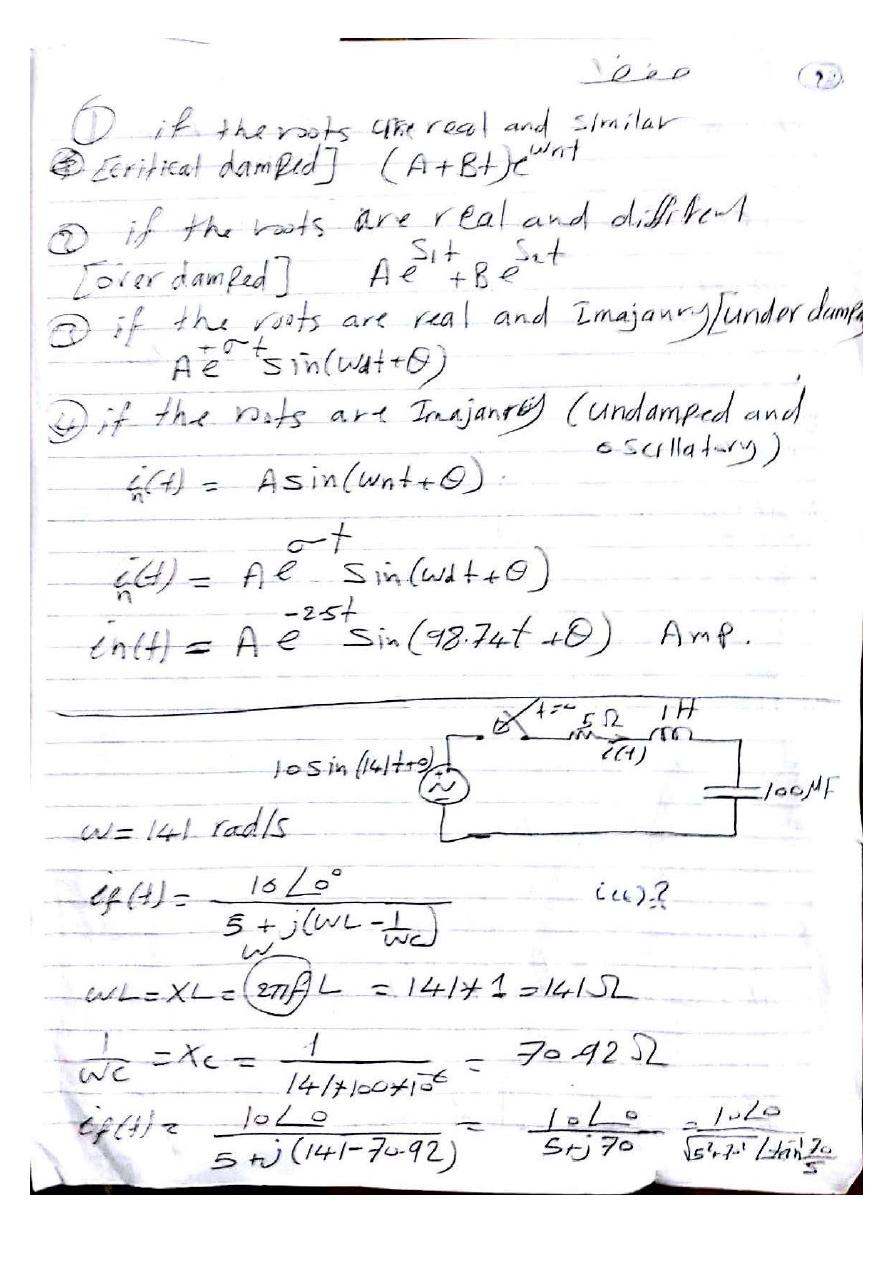 ① if the roots are real and similar
[critical damped] (A+Bt)e^wnt
② if the roots are real and diffirent
[over damped] Ae^S1t + Be^S2t
③ if the roots are real and Imajanry [under damp
Ae^+σt sin(wdt+θ)
④ if the roots are Imajanrey (undamped and
oscillatory)
in(t) = A sin(wnt+θ).
in(t) = Ae^σt sin(wdt+θ)
in(t) = Ae^-2.5t sin(98.74t+θ) Amp.
5Ω 1H
i(t)
10 sin(141t+θ)
100μF
w = 141 rad/s
if(t) = 10∠0° / 5+j(wL - 1/wc)
w
wL = XL = 2πf L = 141*1 = 141Ω
1/wc = Xc = 1 / 141*100*10^-6 = 70.92Ω
if(t) = 10∠0 / 5+j(141-70.92) = 10∠0 / 5+j70 = 10∠0 / √5²+70² ∠tan⁻¹ 70/5